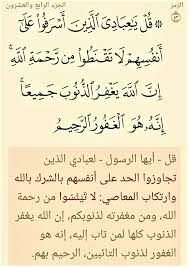 الزمر
الجزء الرابع والعشرون
۞ قُلْ يَٰعِبَادِىَ ٱلَّذِينَ أَسْرَفُوا۟ عَلَىٰٓ
أَنفُسِهِمْ لَا تَقْنَطُوا۟ مِن رَّحْمَةِ ٱللَّهِۚ
إِنَّ ٱللَّهَ يَغْفِرُ ٱلذُّنُوبَ جَمِيعًاۚ
إِنَّهُۥ هُوَ ٱلْغَفُورُ ٱلرَّحِيمُ
قل - أيها الرسول - لعبادي الذين
تجاوزوا الحد على أنفسهم بالشرك بالله
وارتكاب المعاصي: لا تَيْئسُوا من رحمة
الله، ومن مغفرته لذنوبكم، إن الله يغفر
الذنوب كلها لمن تاب إليه، إنه هو
الغفور لذنوب التائبين، الرحيم بهم.